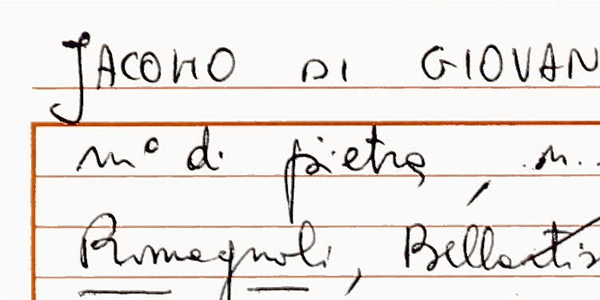 JACOMO DI GIOVAN
mº di pietra, m..
Romagnoli, Bellartis